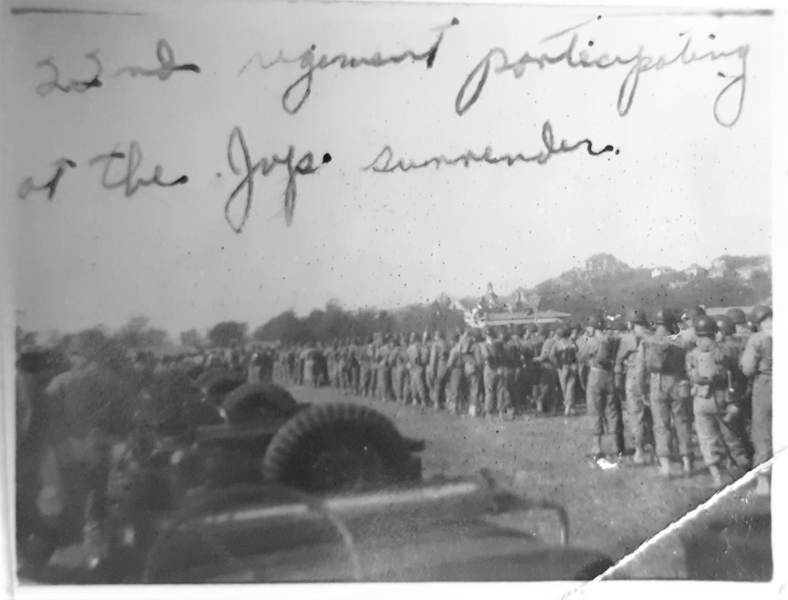 22nd regiment participating
at the Japs. surrender.